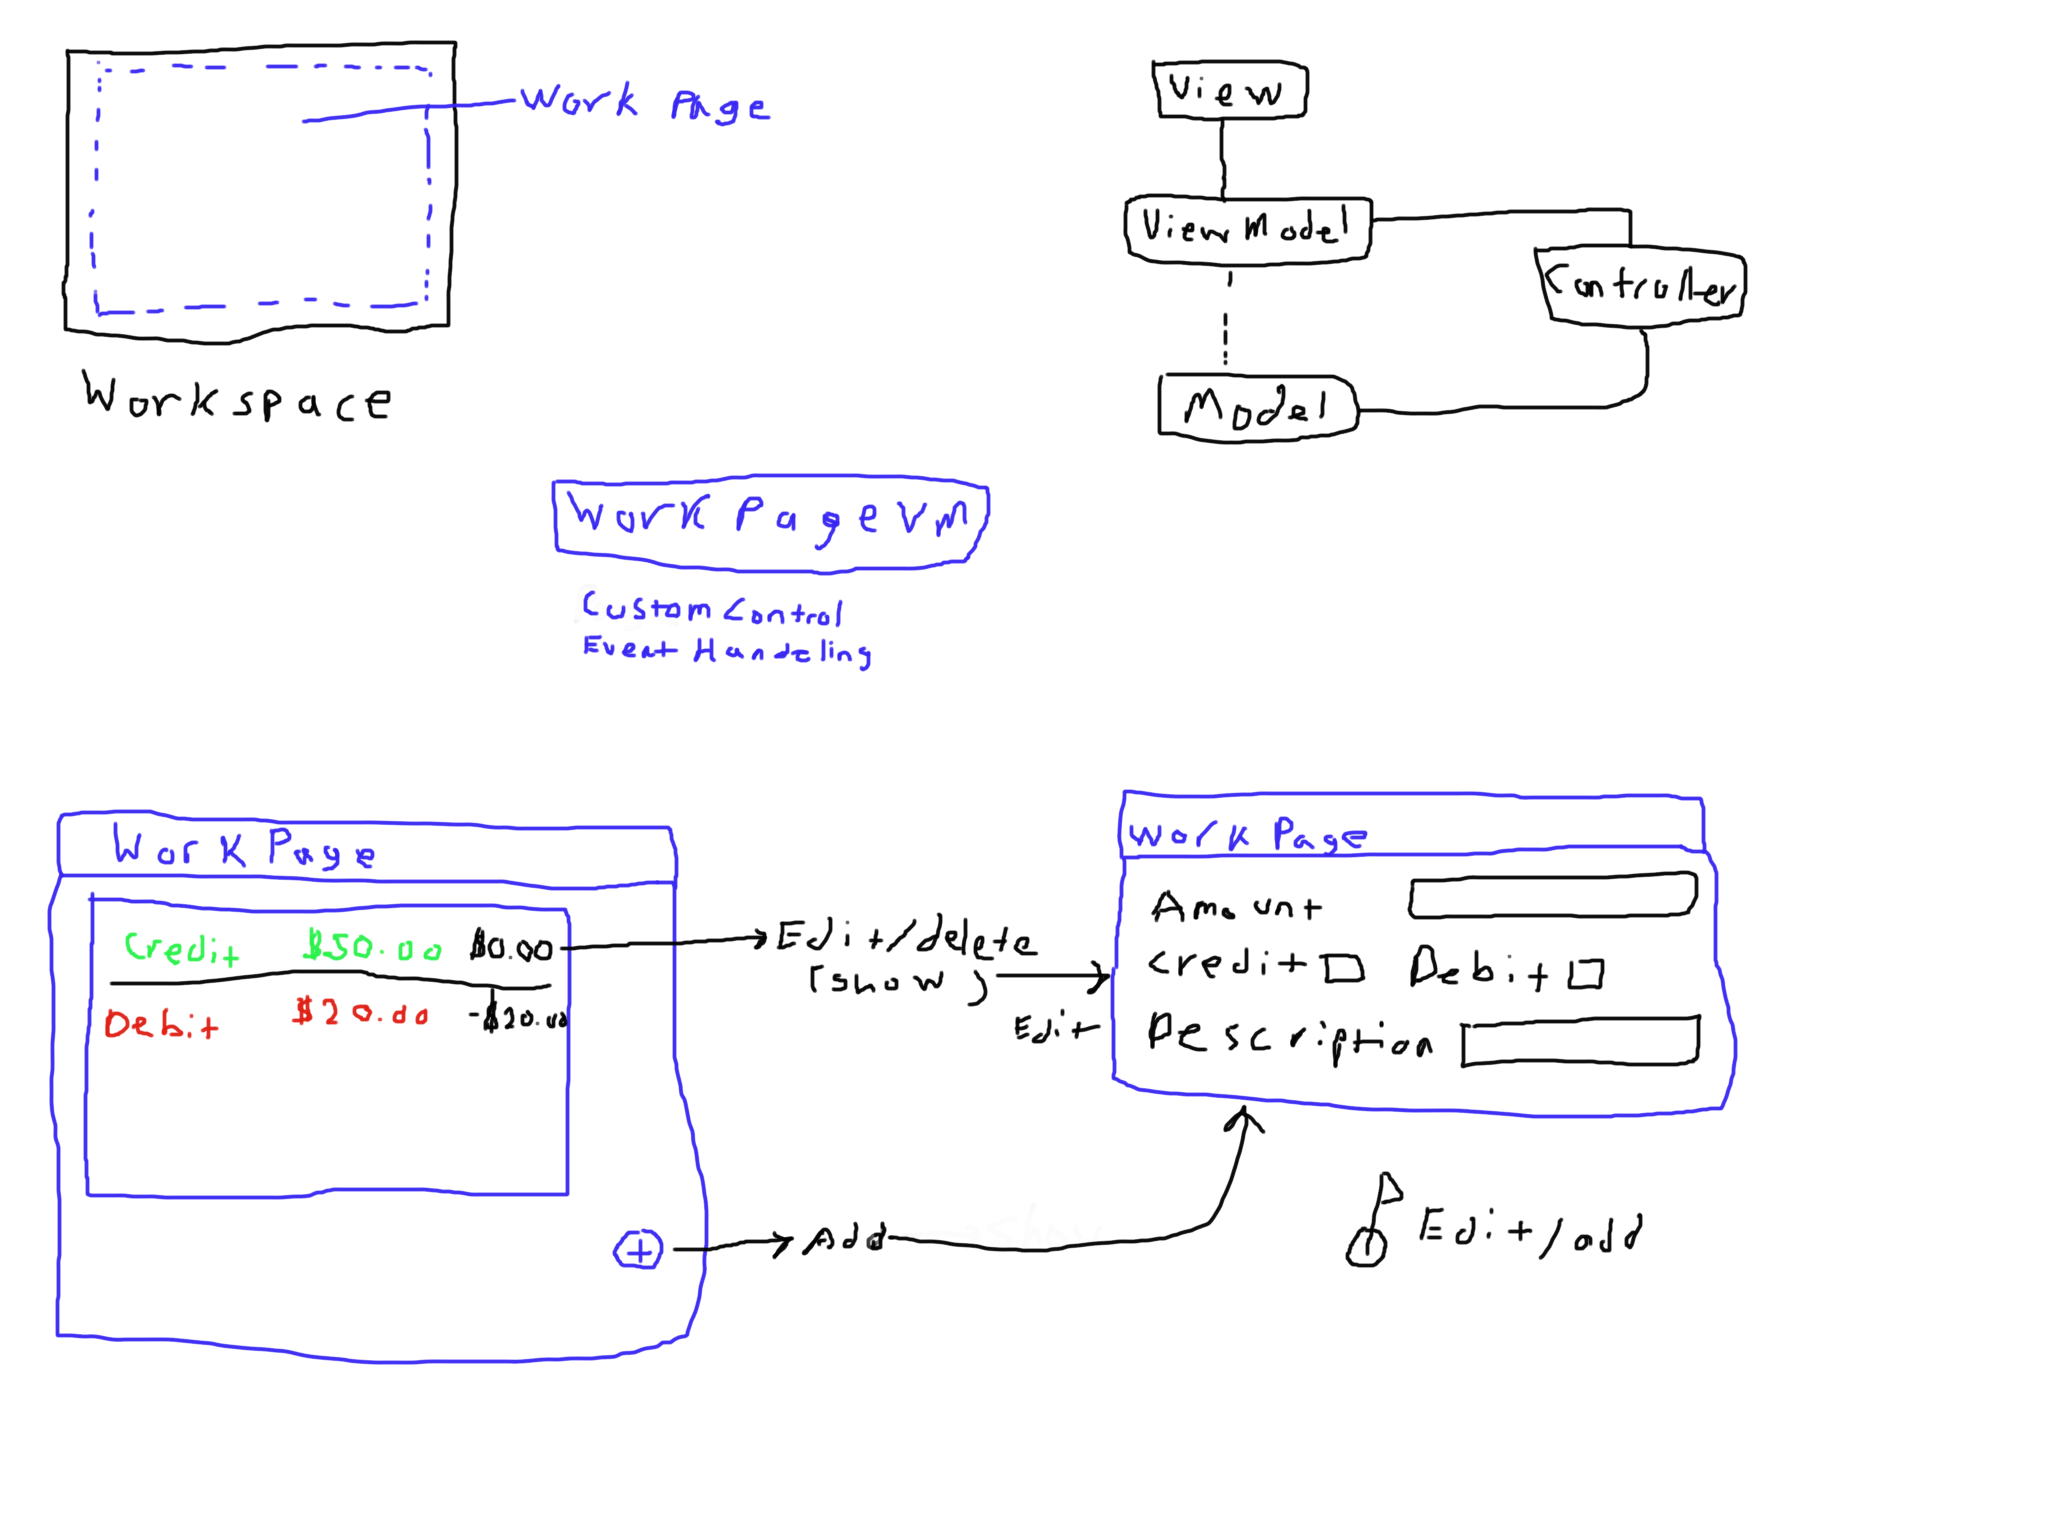 Work Page
Workspace
View
ViewModel
Controller
Model
Work Page VM
Custom Control
Event Handeling
Work Page
Credit $50.00 $0.00
Debit $20.00 -$20.00
Edit/delete
(show)
Edit
Add
Work Page
Amount
Credit Debit
Description
Edit/add